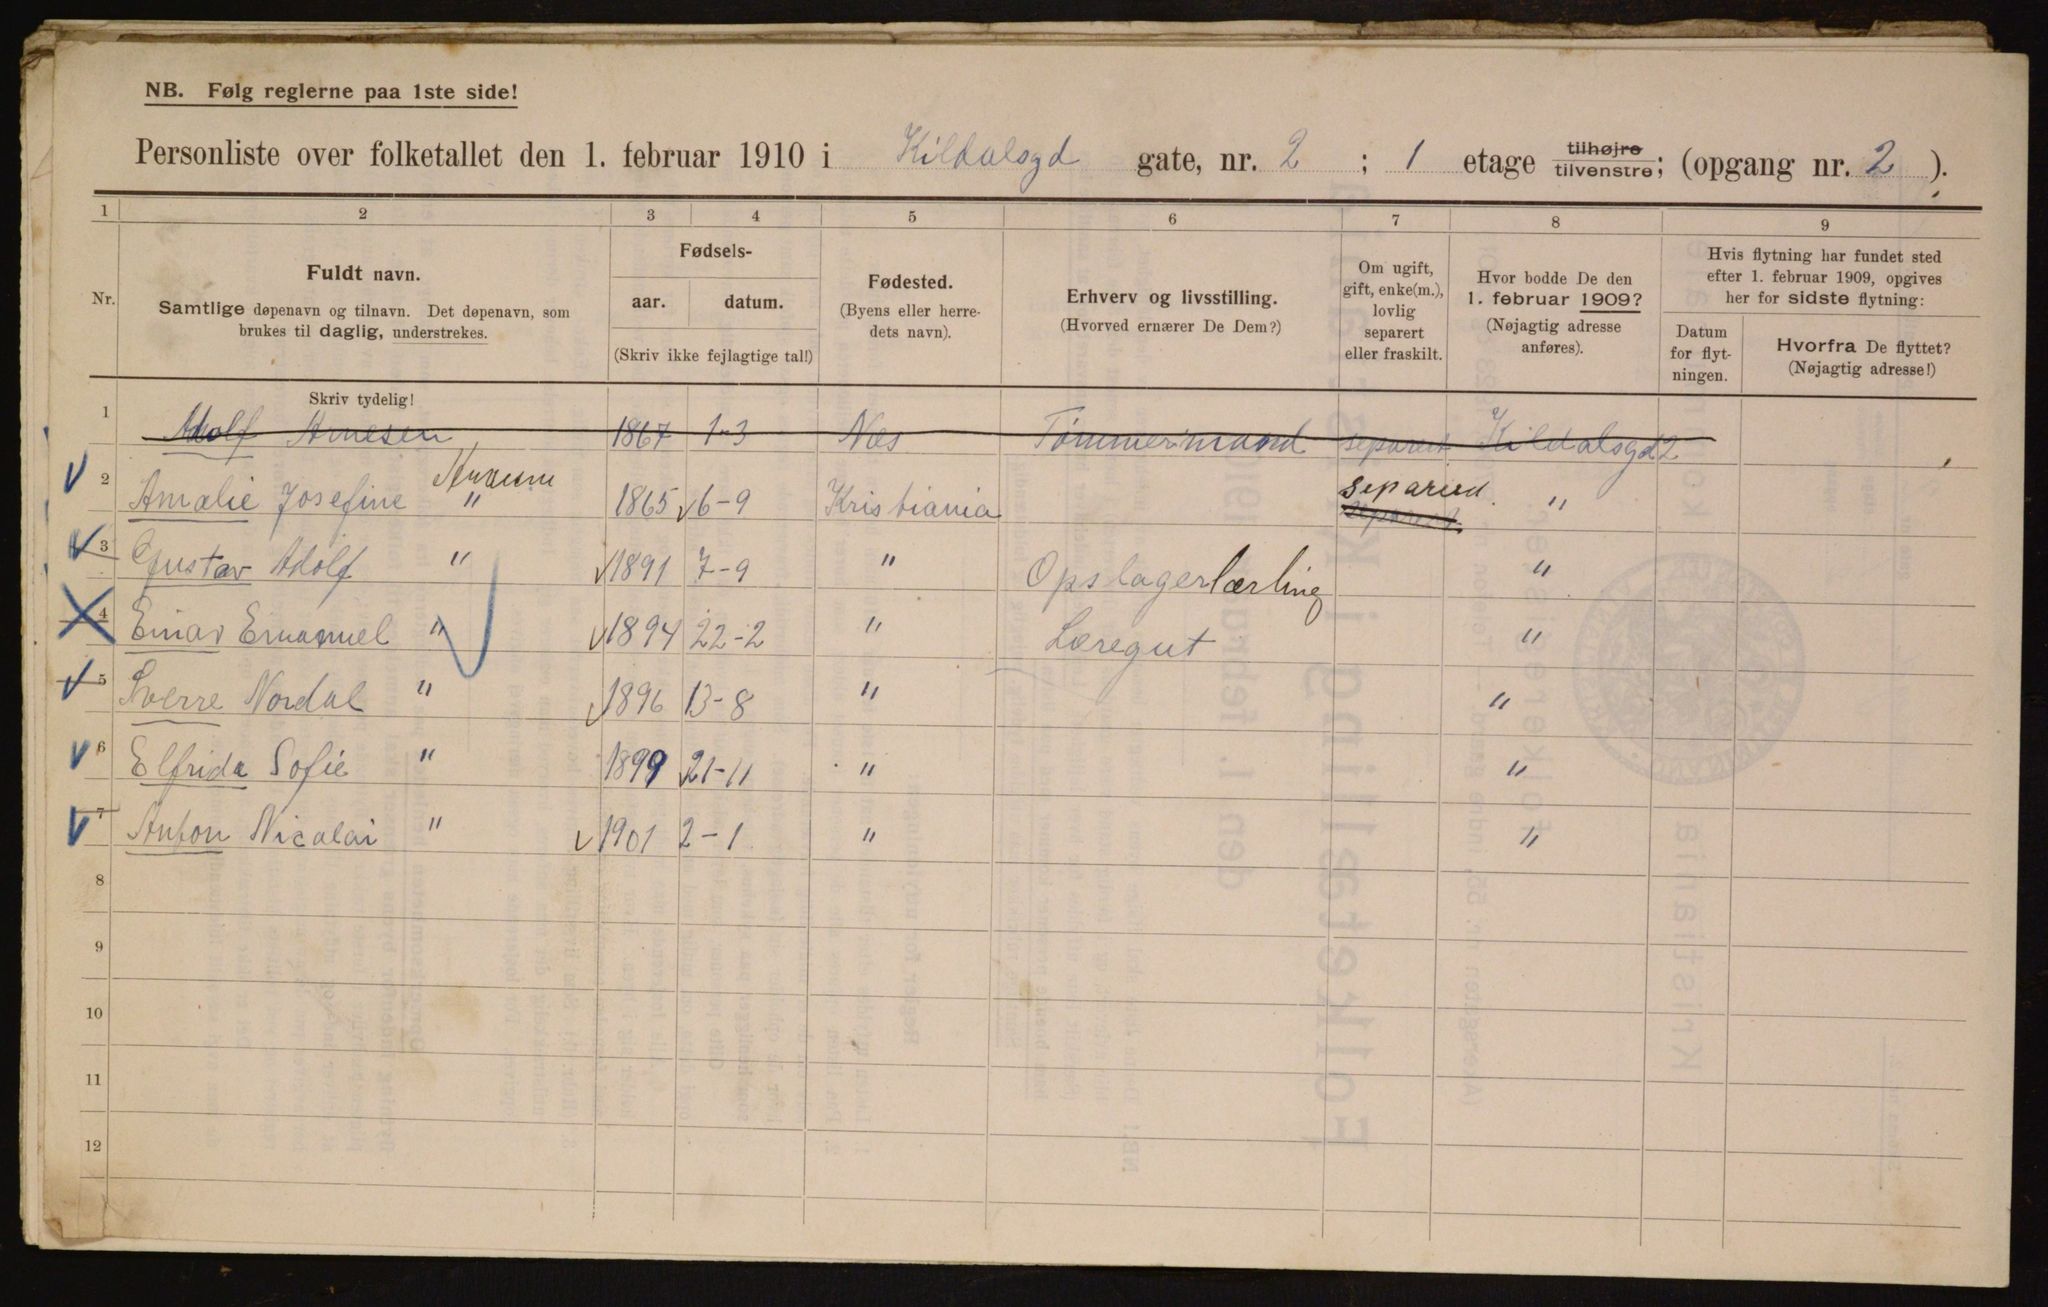 NB. Følg reglerne paa 1ste side!
Personliste over folketallet den 1. februar 1910 i Kildalsgd gate, nr. 2 ; 1 etage tilhøjre tilvenstre; (opgang nr. 2 ).
1 2 3 4 5 6 7 8 9
Nr.
Fuldt navn.
Samtlige døpenavn og tilnavn. Det døpenavn, som
brukes til daglig, understrekes.
Skriv tydelig!
Fødsels-
aar. datum.
(Skriv ikke fejlagtige tal!)
Fødested.
(Byens eller herre-
dets navn).
Erhverv og livsstilling.
(Hvorved ernærer De Dem?)
Om ugift,
gift, enke(m.),
lovlig
separert
eller fraskilt.
Hvor bodde De den
1. februar 1909?
(Nøjagtig adresse
anføres).
Hvis flytning har fundet sted
efter 1. februar 1909, opgives
her for sidste flytning:
Datum
for flyt-
ningen.
Hvorfra De flyttet?
(Nøjagtig adresse!)
1 Adolf Arnesen 1867 1-3 Næs Tømmermand separert Kildalsgd 2
Arnesen separied
2 Amalie Josefine " 1865 6-9 Kristiania separert "
3 Gustav Adolf " 1891 7-9 " Opslagerlærling "
4 Einar Emanuel " 1894 22-2 " Læregut "
5 Sverre Nordal " 1896 13-8 " "
6 Elfrida Sofie " 1899 21-11 " "
7 Anton Nicolai " 1901 2-1 " "
8
9
10
11
12